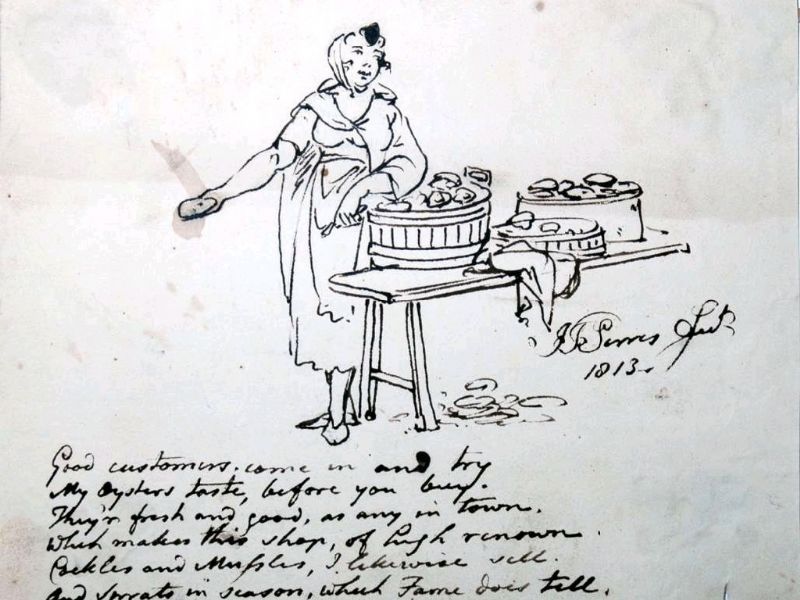 J T Serres Fect
1813.
Good customers, come in and try
My Oysters taste, before you buy.
They'r fresh and good, as any in town.
Which makes this shop, of high renown.
Cockles and Mussles, I likewise sell.
And Sprats in season, which Fame does tell.